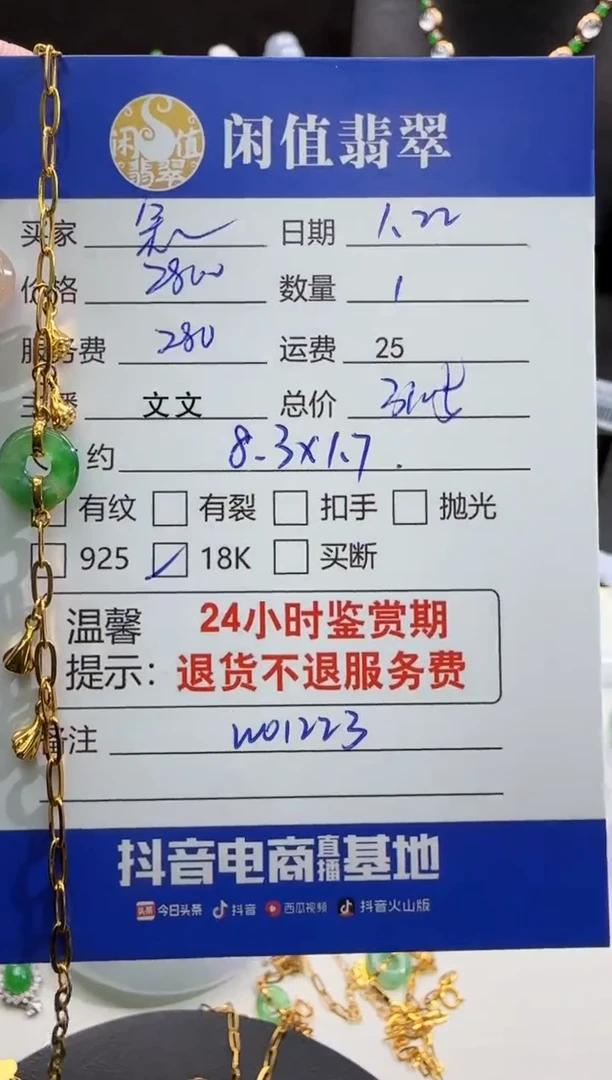 闲值翡翠
闲值翡翠
买家 日期 1.22
价格 2800 数量 1
服务费 280 运费 25
主播 文文 总价
约 8.3×1.7.
有纹 有裂 扣手 抛光
925 18K 买断
温馨 24小时鉴赏期
提示: 退货不退服务费
备注 W01223
抖音电商直播基地
头条 今日头条 抖音 西瓜视频 抖音火山版